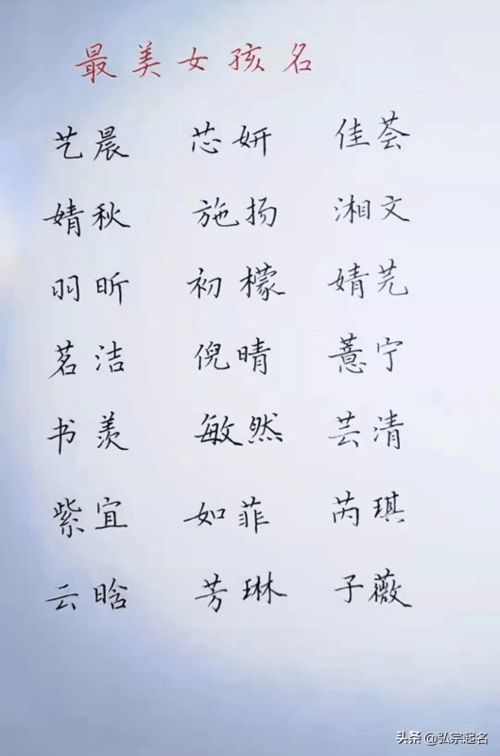 最美女孩名
艺晨 芯妍 佳荟
婧秋 施扬 湘文
羽昕 初檬 婧芫
茗洁 倪晴 薏宁
书羡 敏然 芸清
紫宜 如菲 芮琪
云晗 芳琳 子薇
头条 @弘宗起名